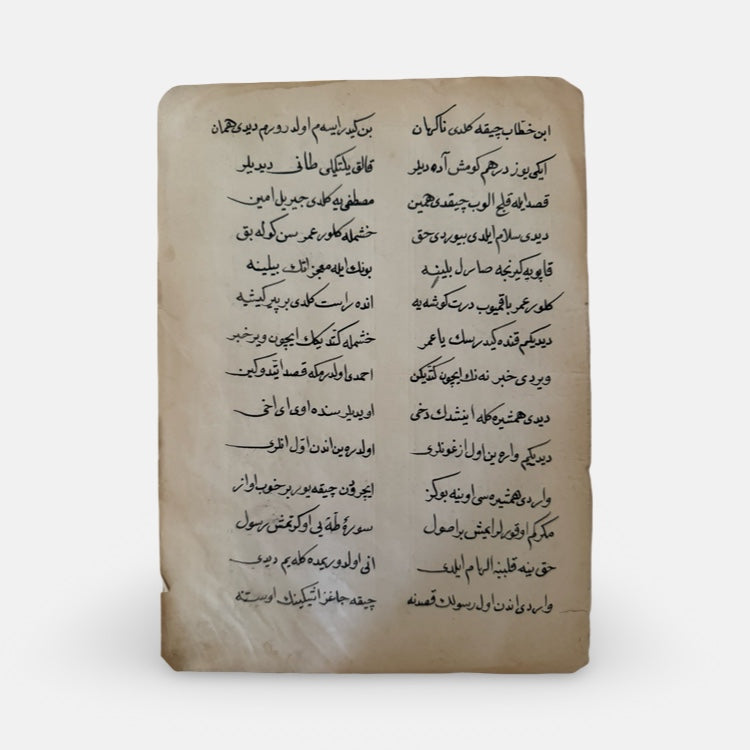 ابن خطّاب چیقه کلدی ناکهان بن کیدر ایسه م اولدرورم دیدی همان
ایکی یوز درهم کومش آده دیلر قالق یلتکیلی طانی دیدیلر
قصد ایله قلج الوب چیقدی همین مصطفی یه کلدی جبریل امین
دیدی سلام ایلدی بیوردی حق خشمله کلور عمر سن کوله بق
قاپویه کیرنجه صارل بلینه بونك ایله معجزاتك بیلینه
کلور عمر باقمیوب درت کوشه یه انده راست کلدی بر پیر کیشیه
دیدیکم قنده کیدرسك یا عمر خشمله کتدیکك ایچون ویر خبر
ویردی خبر نه نك ایچون کتدیکن احمدی اولدرمکه قصد ایتدوکین
دیدی همشیره کله اینشدك دخی اویدیلر سنده اوی ای اخی
دیدیکم واره ین اول ازغونلری اولدره ین اندن اوّل انلری
واردی همشیره سی اوینه بوکز ایچرودن چیقه یور بر خوب اواز
مکرکم اوقورلر ایمش براصول سورۀ طٰه یی اوکرتمش رسول
حق ینه قلبینه الهام ایلدی انی اولدوریمده کله یم دیدی
واردی اندن اول رسولك قصدنه چیقه جاغز اتیکینك اوستنه